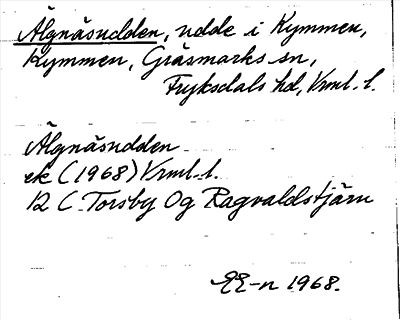 Älgnäsudden, udde i Kymmen,
Kymmen, Gräsmarks sn,
Fryksdals hd, Vrml. l.
Älgnäsudden
ek (1968) Vrml. l.
12 C Torsby Og Ragvaldstjärn
EE-n 1968.